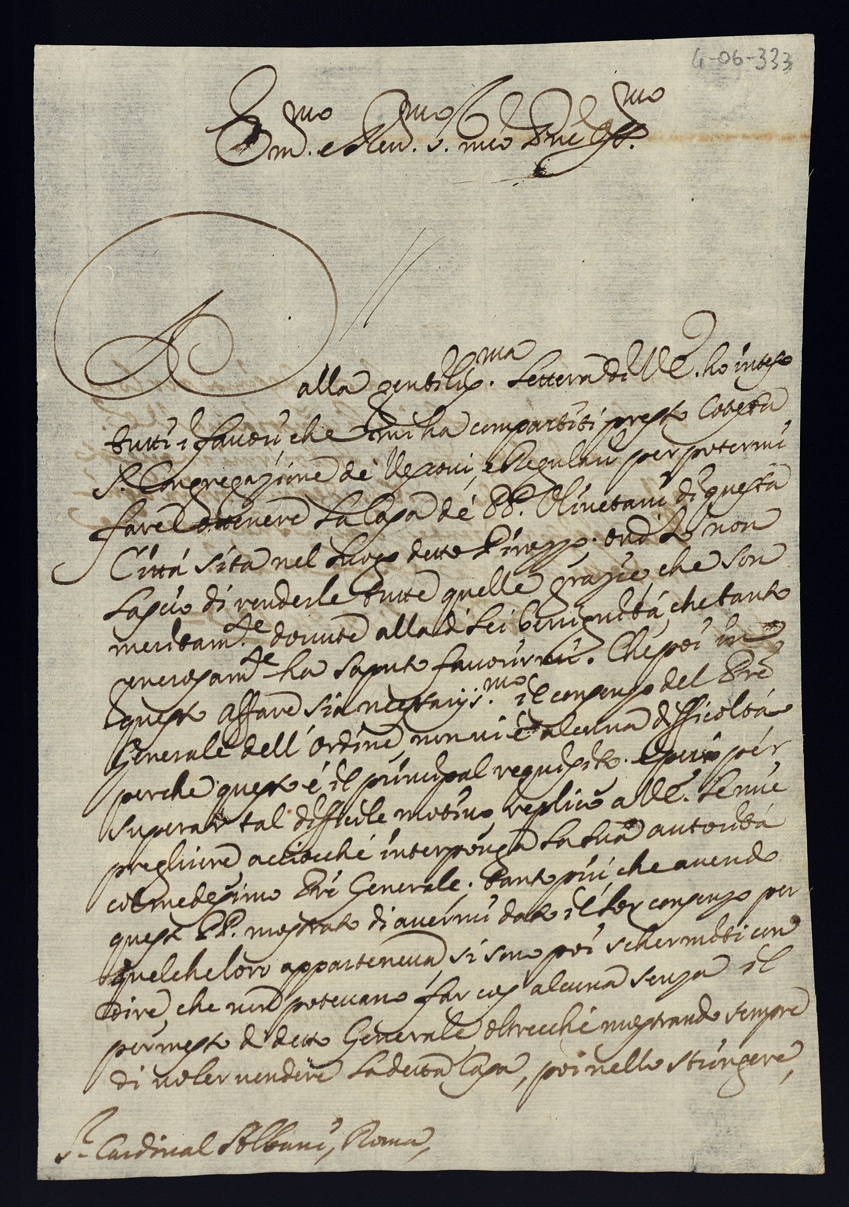 4-06-333
Em.mo e Reu.mo S. mio Pne Oss.mo
Dalla gentiliss.ma Lettera di V.E. ho inteso
tutti i fauori che mi ha compartiti presso Cotesta
S. Congregazione de' Vescoui, e Regulari per potermi
fare ottenere la Casa de' PP. Oliuetani di questa
Città sita nel Luogo detto Pirozzo. ond'Io non
lascio di renderle tutte quelle grazie che son
meritam.te douute alla di Lei benignità, che tanto
generosam.te ha saputo fauorirmi. Che poi in
questo affare sia necessarijs.mo il consenso del Pre
Generale dell'Ordine non ui è alcuna difficoltà
perche questo è il principal requisito. e però per
superar tal difficile motiuo replico a V.E. le mie
preghiere acciocché interponga la sua autorità
col medesimo Pre Generale. tanto più che auendo
questi PP. mostrato di auermi dato il lor consenso per
quelche loro apparteneua, si sono poi schermiti con
dire che non poteuano far cos'alcuna senza il
permesso di detto Generale oltrecché mostrando sempre
di uoler uendere la detta Casa, poi nello stringere,
S.r Cardinal Albani, Roma,